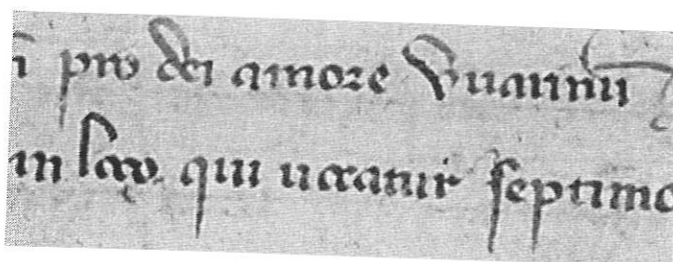 pro dei amore
in loco qui uocatur septimo